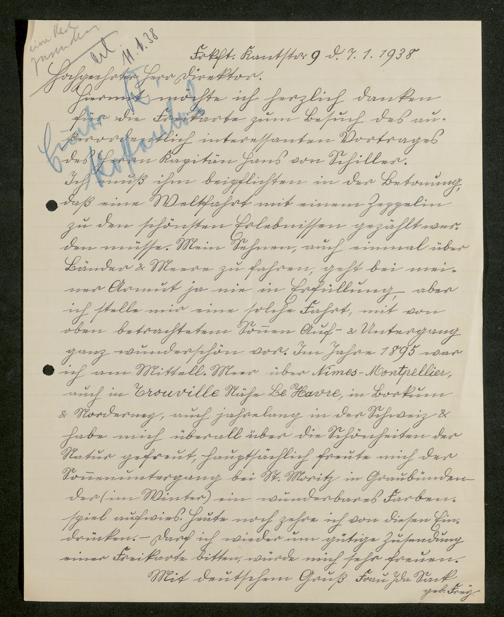 Frkft. Kantstr 9 d. 7. 1. 1938
11.1.38
Hochgeehrter Herr Direktor.
Hiermit möchte ich herzlich danken
für die Freikarte zum Besuch des au-
ßerordentlich interessanten Vortrages
des Herrn Kapitän Hans von Schiller.
Ich muß ihm beipflichten in der Betonung,
daß eine Weltfahrt mit einem Zeppelin
zu den schönsten Erlebnissen gezählt wer-
den müsse. Mein Sehnen, auch einmal über
Länder & Meere zu fahren, geht bei mei-
ner Armut ja nie in Erfüllung, aber
ich stelle mir eine solche Fahrt, mit von
oben betrachtetem Sonnen Auf- & Untergang
ganz wunderschön vor. Im Jahre 1895 war
ich am Mittell. Meer über Nimes-Montpellier,
auch in Trouville Nähe Le Havre, in Borkum
& Norderney, auch jahrelang in der Schweiz &
habe mich überall über die Schönheiten der
Natur gefreut, hauptsächlich freute mich der
Sonnenuntergang bei St. Moritz in Graubünden
der (im Winter) ein wunderbares Farben-
spiel aufwies. Heute noch zehre ich von diesen Ein-
drücken. - Darf ich wieder um gütige Zusendung
einer Freikarte bitten, würde mich sehr freuen.
Mit deutschem Gruß Frau Ida
geb. Frey